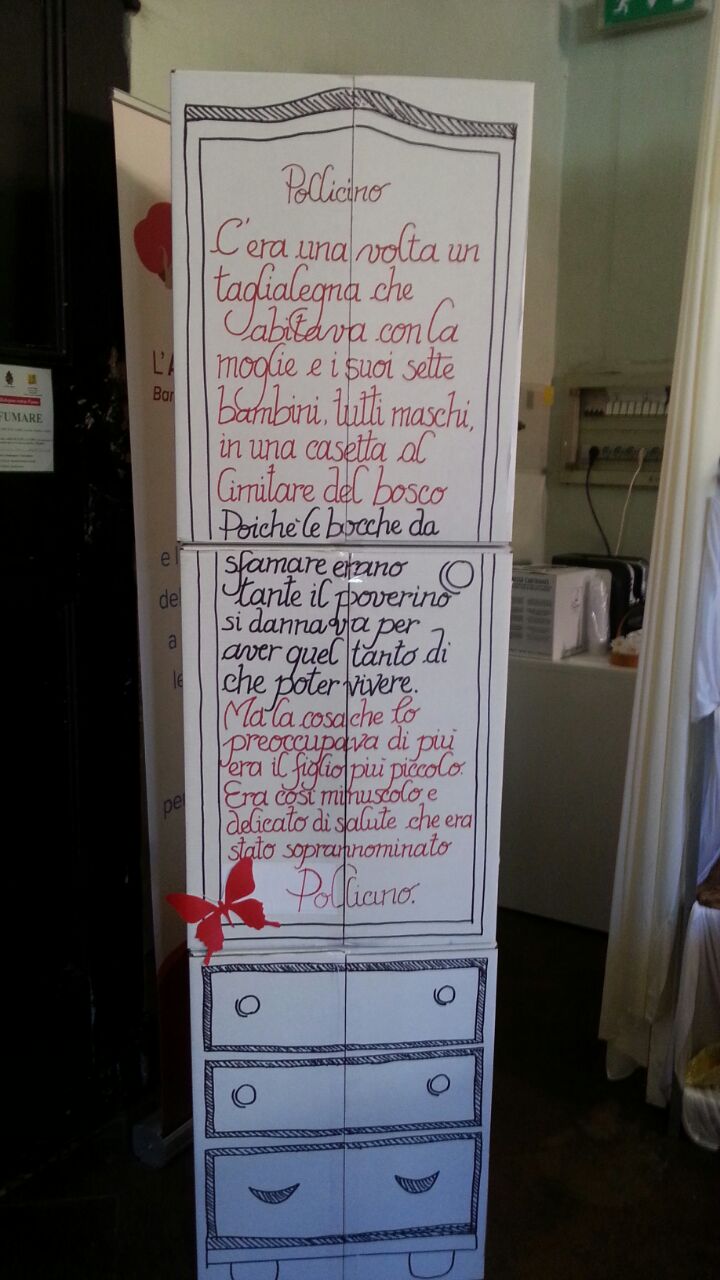 Pollicino
C'era una volta un
taglialegna che
abitava con la
moglie e i suoi sette
bambini, tutti maschi,
in una casetta al
limitare del bosco
Poichè le bocche da
sfamare erano
tante il poverino
si dannava per
aver quel tanto di
che poter vivere.
Ma la cosa che lo
preoccupava di più
era il figlio più piccolo.
Era così minuscolo e
delicato di salute che era
stato soprannominato
Pollicino.
L'A
Bar
FUMARE
e l
del
a
le
per